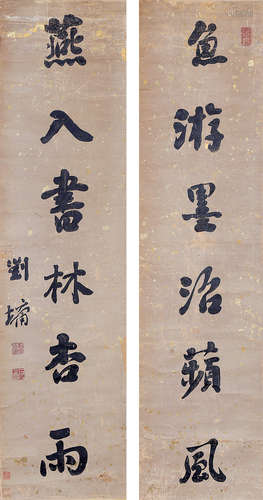 魚游墨沼蘋風
燕入書林杏雨
劉墉